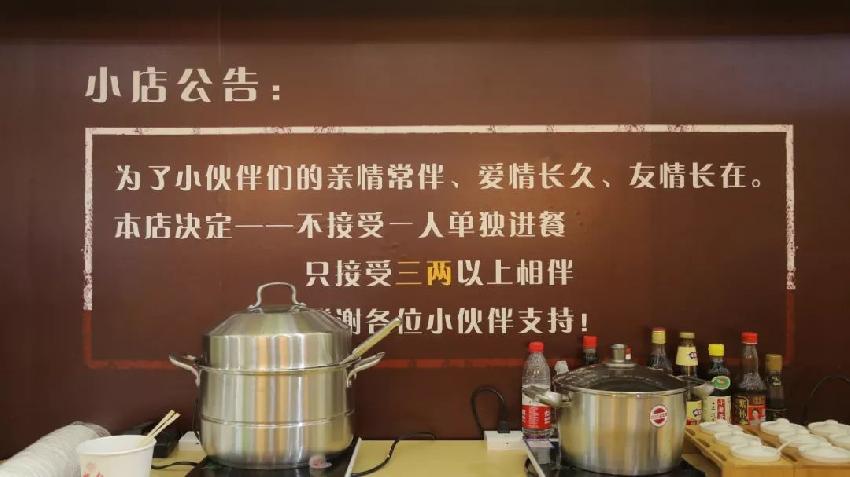 小店公告:
为了小伙伴们的亲情常伴、爱情长久、友情长在。
本店决定——不接受一人单独进餐
只接受三两以上相伴
谢各位小伙伴支持!